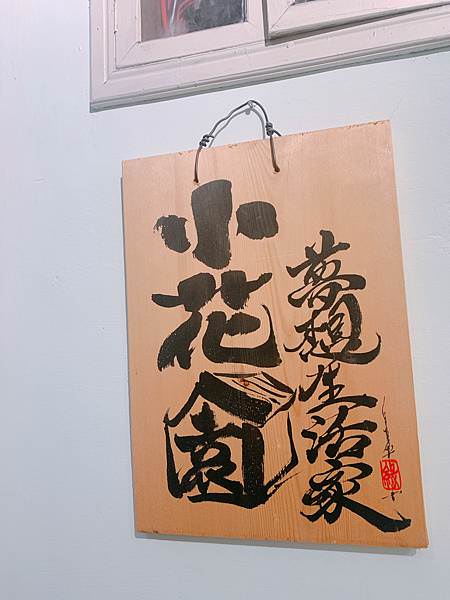 夢想生活家
小花園